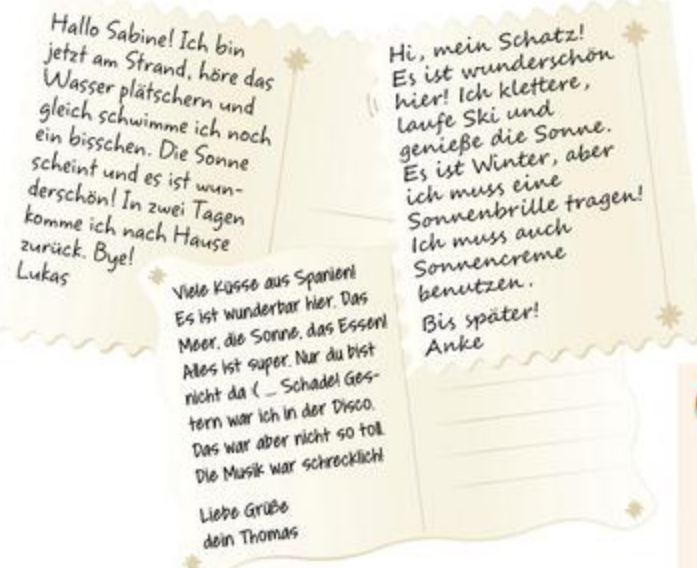 Hallo Sabine! Ich bin
jetzt am Strand, höre das
Wasser plätschern und
gleich schwimme ich noch
ein bisschen. Die Sonne
scheint und es ist wun-
derschön! In zwei Tagen
komme ich nach Hause
zurück. Bye!
Lukas
Hi, mein Schatz!
Es ist wunderschön
hier! Ich klettere,
laufe Ski und
genieße die Sonne.
Es ist Winter, aber
ich muss eine
Sonnenbrille tragen!
Ich muss auch
Sonnencreme
benutzen.
Bis später!
Anke
Viele Küsse aus Spanien!
Es ist wunderbar hier. Das
Meer, die Sonne, das Essen!
Alles ist super. Nur du bist
nicht da ( _ Schade! Ges-
tern war ich in der Disco.
Das war aber nicht so toll.
Die Musik war schrecklich!
Liebe Grüße
dein Thomas